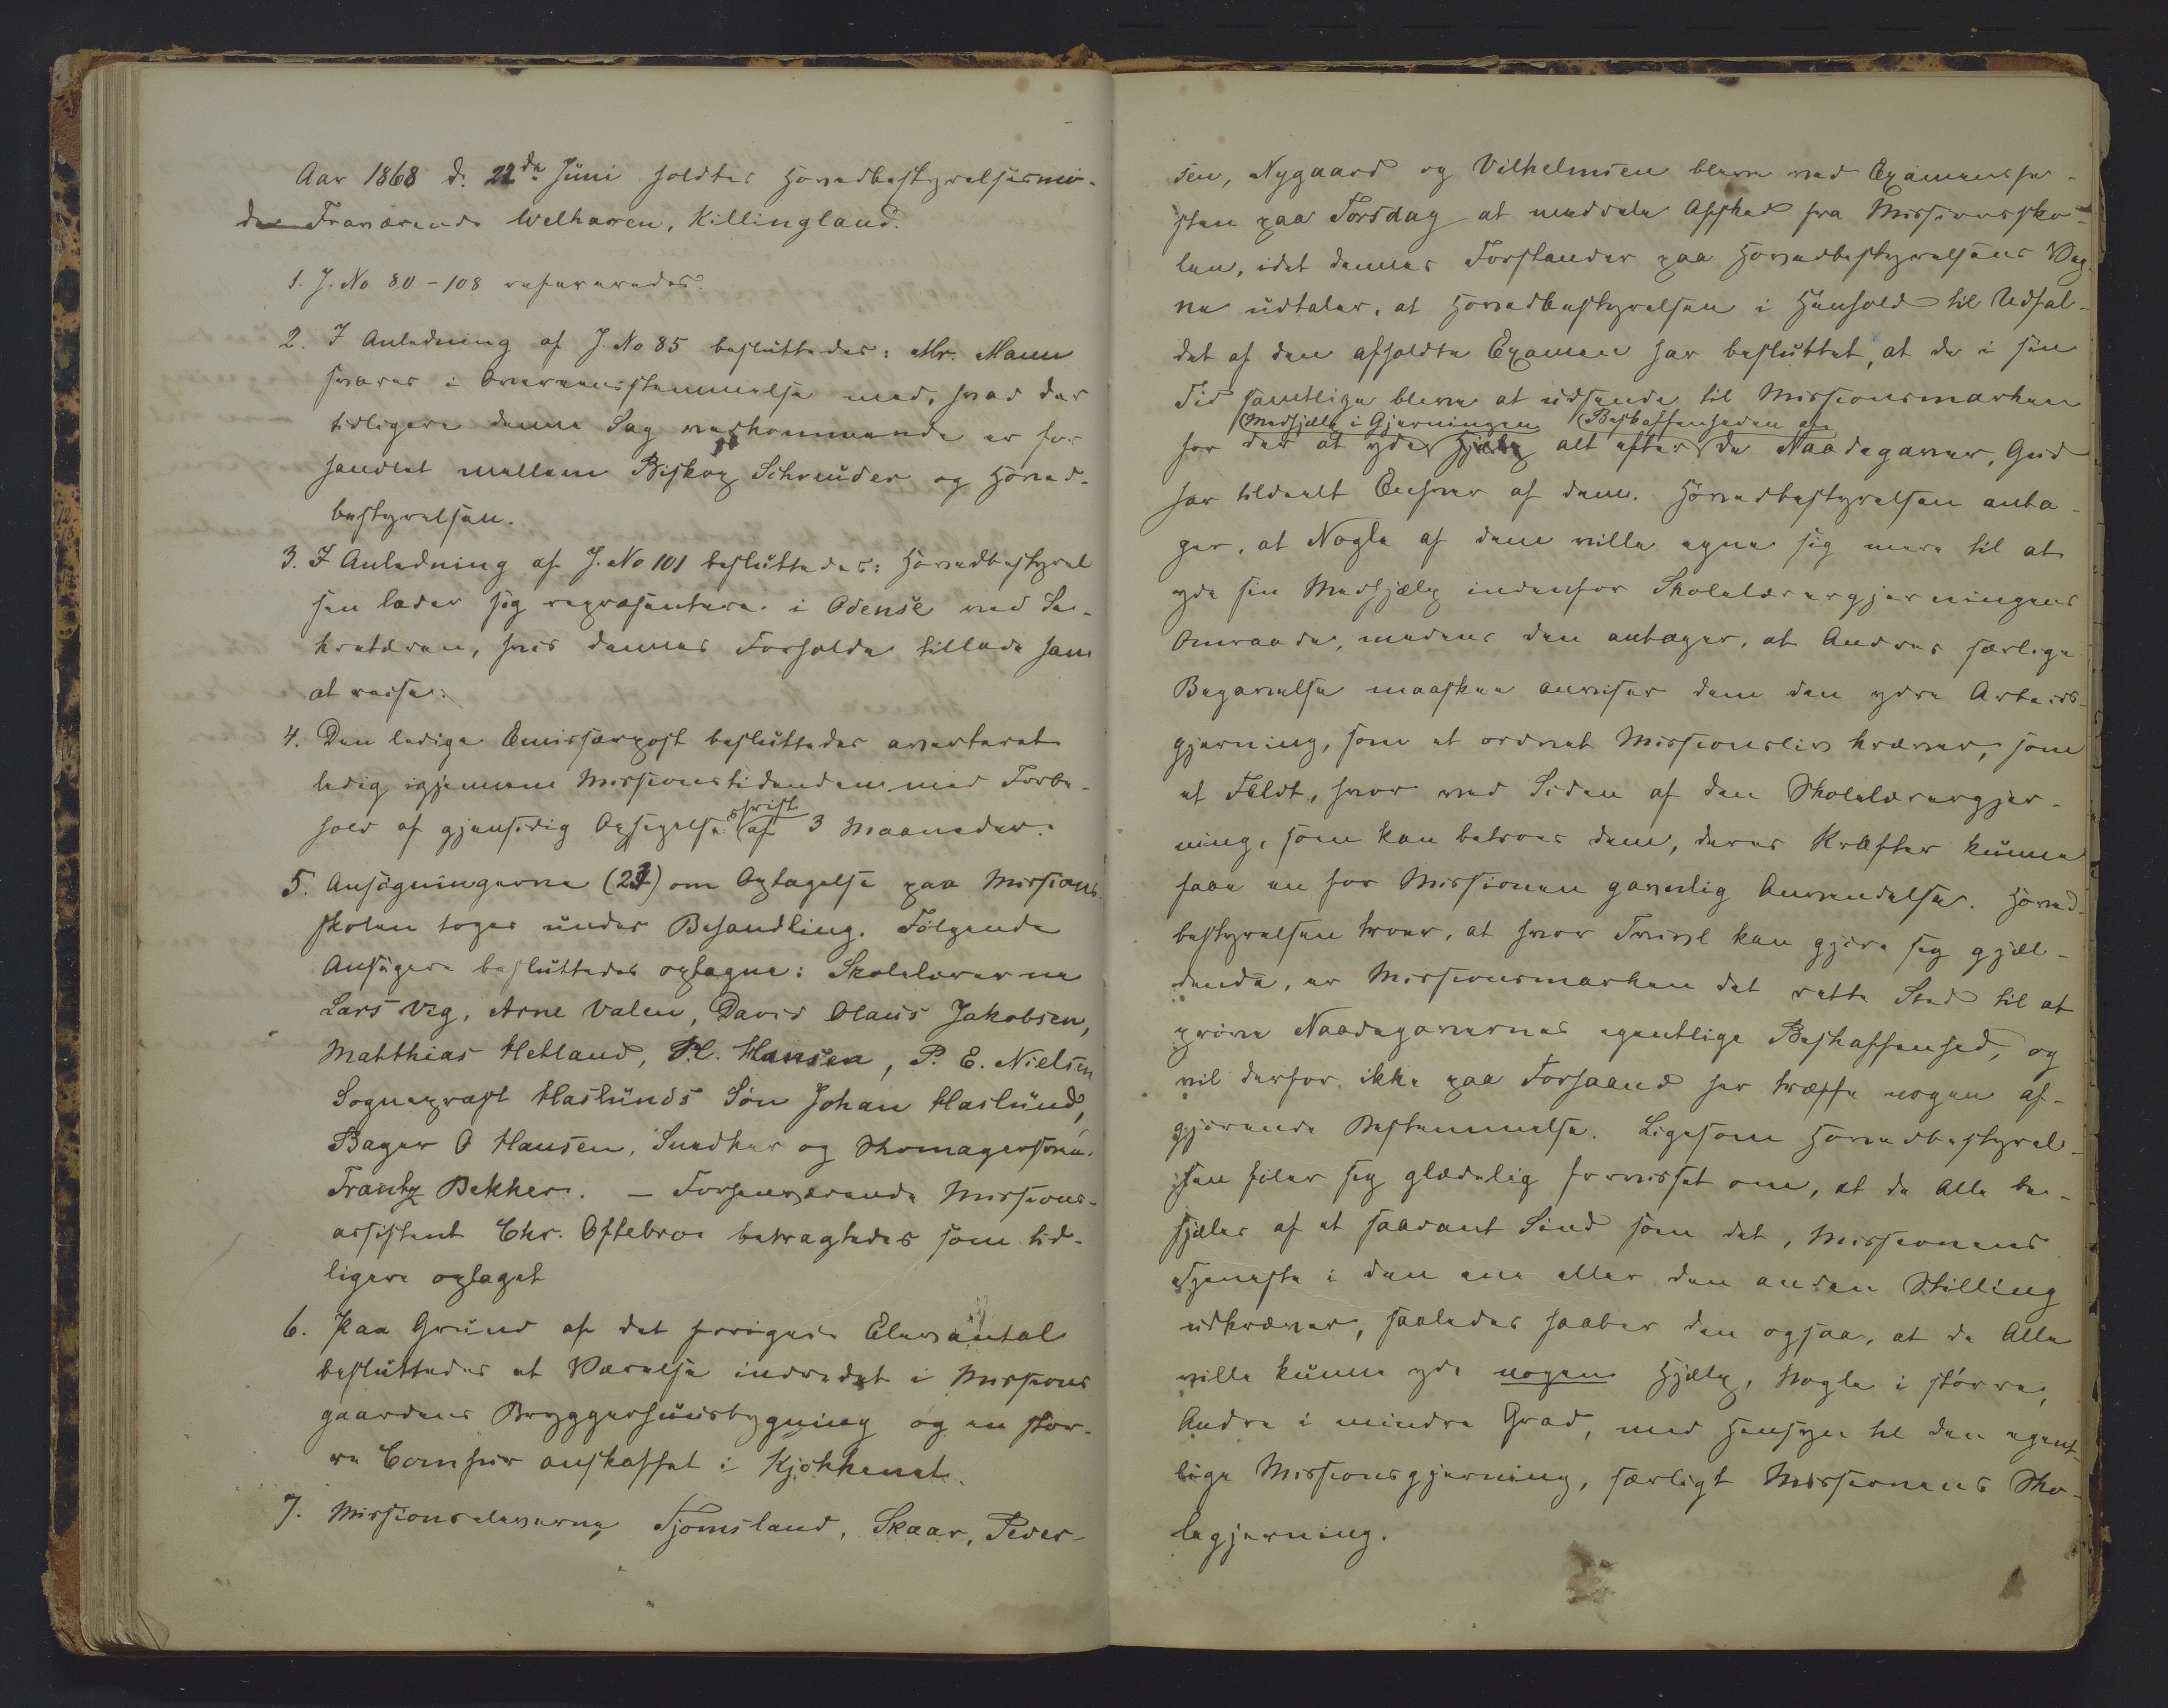 Aar 1868 d. 22de Juni holdtes Hovedbestyrelsesmö-
de Fraværende Welhaven, Killingland.
1. J. No 80 - 108 refereredes.
2. I Anledning af J. No 85 besluttedes: Mr. Mann
svares i Overeensstemmelse med, hvad der
tidligere denne Sag vedkommende er for
handlet mellem Biskop Schreuder og Hoved-
bestyrelsen.
3. I Anledning af J. No 101 besluttedes: Hovedbestyrel
sen lader sig repræsentere i Odense ved Se-
kretæren, hvis dennes Forholde tillade ham
at reise.
4. Den ledige Emissærpost besluttedes averteret
ledig igjennem Missionstidenden med Forbe-
hold af gjensidig Opsigelsesfrist af 3 Maaneder.
5. Ansögningerne (21) om Optagelse paa Missions
skolen toges under Behandling. Fölgende
Ansögere besluttedes optagne: Skolelærerne
Lars Vig, Arne Valen, David Olaus Jakobsen,
Matthias Hetland, H. Hansen, P. E. Nielsen
Sognepræst Haslunds Sön Johan Haslund,
Bager O Hansen, Snedker og Skomagersvend
Frantz Bekker. – Forhenværende Missions-
assistent Chr. Oftebro betragtedes som tid-
ligere optaget
6. Paa Grund af det forögede Elevantal
besluttedes et Værelse indredet i Missions
gaardens Bryggerhuusbygning og en stör-
re Comfur anskaffet i Kjökkenet.
7. Missionseleverne Tjomsland, Skaar, Peder-
sen, Nygaard og Vilhelmsen bleve ved Examensfe-
sten paa Torsdag at meddele Afsked fra Missionssko-
len, idet dennes Forstander paa Hovedbestyrelsens Veg-
ne udtaler, at Hovedbestyrelsen i Henhold til Udfal-
det af den afholdte Examen har besluttet, at de i sin
Tid samtlige bleve at udsende til Missionsmarken
for der at yde Medhjælp i Gjerningen alt efter Beskaffenheden af de Naadegaver, Gud
har tildeelt Enhver af dem. Hovedbestyrelsen anta-
ger, at Nogle af dem ville egne sig mere til at
yde sin Medhjælp indenfor Skolelærergjerningens
Omraade, medens den antager, at Andres særlige
Begavelse maaskee anviser dem den ydre Arbeids-
gjerning, som et ordnet Missionsliv kræver, som
et Feldt, hvor ved Siden af den Skolelærergjer-
ning, som kan betroes dem, deres Kræfter kunne
faae en for Missionen gavnlig Anvendelse. Hoved-
bestyrelsen troer, at hvor Tvivl kan gjöre sig gjæl-
dende, er Missionsmarken det rette Sted til at
pröve Naadegavernes egentlige Beskaffenhed, og
vil derfor ikke paa Forhaand her træffe nogen af-
gjörende Bestemmelse. Ligesom Hovedbestyrel-
sen föler sig glædelig forvisset om, at de Alle be-
sjæles af et saadant Sind som det, Missionens
Tjeneste i den ene eller den anden Stilling
udkræver, saaledes haaber den ogsaa, at de Alle
ville kunne yde nogen Hjælp, Nogle i större,
Andre i mindre Grad, med Hensyn til den egent-
lige Missionsgjerning, særligt Missionens Sko-
legjerning.